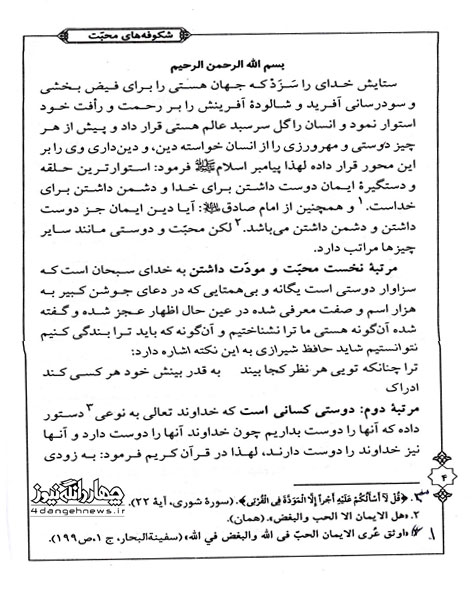 شکوفه‌های محبّت
بسم الله الرحمن الرحیم
ستایش خدای را سَزَدْ که جهان هستی را برای فیض بخشی
و سودرسانی آفرید و شالودهٔ آفرینش را بر رحمت و رأفت خود
استوار نمود و انسان را گل سرسبد عالم هستی قرار داد و پیش از هر
چیز دوستی و مهرورزی را از انسان خواسته دین، و دین‌داری وی را بر
این محور قرار داده لهذا پیامبر اسلام ﷺ فرمود: استوارترین حلقه
و دستگیرهٔ ایمان دوست داشتن برای خدا و دشمن داشتن برای
خداست.۱ و همچنین از امام صادق : آیا دین ایمان جز دوست
داشتن و دشمن داشتن می‌باشد.۲ لکن محبّت و دوستی مانند سایر
چیزها مراتب دارد.
مرتبهٔ نخست محبّت و مودّت داشتن به خدای سبحان است که
سزاوار دوستی است یگانه و بی‌همتایی که در دعای جوشن کبیر به
هزار اسم و صفت معرفی شده در عین حال اظهار عجز شده و گفته
شده آن‌گونه هستی ما ترا نشناختیم و آن‌گونه که باید ترا بندگی کنیم
نتوانستیم شاید حافظ شیرازی به این نکته اشاره دارد:
ترا چنانکه تویی هر نظر کجا بیند به قدر بینش خود هر کسی کند
ادراک
مرتبهٔ دوم: دوستی کسانی است که خداوند تعالی به نوعی۳ دستور
داده که آنها را دوست بداریم چون خداوند آنها را دوست دارد و آنها
نیز خداوند را دوست دارند، لهذا در قرآن کریم فرمود: به زودی
۴
۳. ﴿قُلْ لَا أَسْأَلُكُمْ عَلَيْهِ أَجْراً إِلَّا الْمَوَدَّةَ فِي الْقُرْبَى﴾. (سورهٔ شوری، آیهٔ ۲۲).
۲. «هل الایمان الا الحب والبغض». (همان).
۱ «اوثق عُری الایمان الحبّ فی الله والبغض في الله» (سفینةالبحار، ج ۱،ص۱۹۹).
چهاردانگه نیوز
4dangehnews.ir